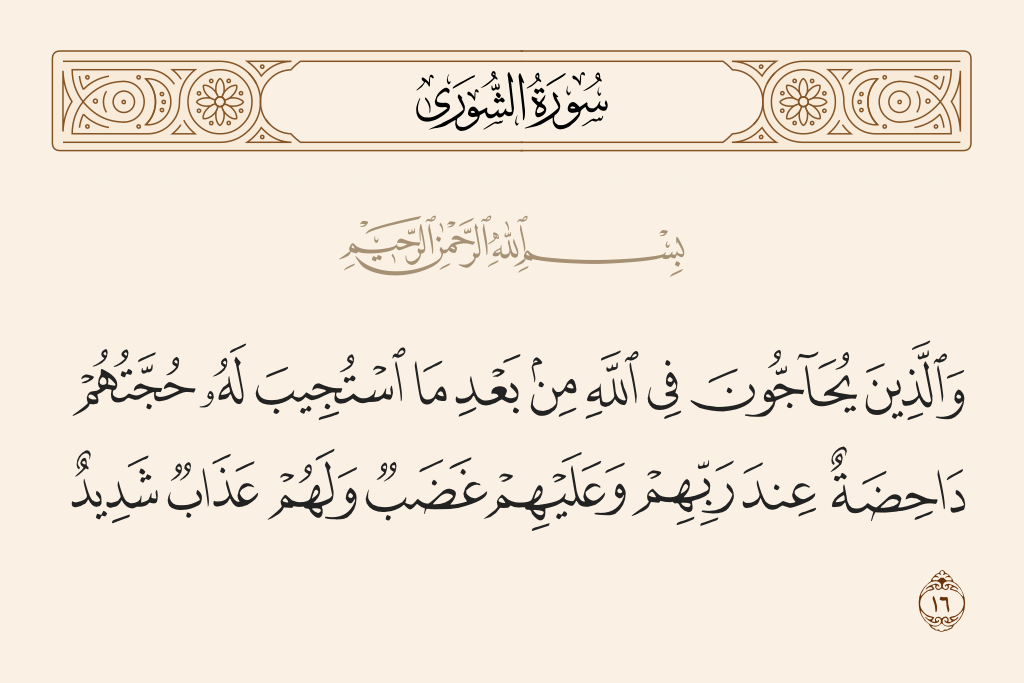 سُورَةُ الشُّورَىٰ
بِسْمِ ٱللَّهِ ٱلرَّحْمَٰنِ ٱلرَّحِيمِ
وَٱلَّذِينَ يُحَآجُّونَ فِى ٱللَّهِ مِنۢ بَعْدِ مَا ٱسْتُجِيبَ لَهُۥ حُجَّتُهُمْ
دَاحِضَةٌ عِندَ رَبِّهِمْ وَعَلَيْهِمْ غَضَبٌ وَلَهُمْ عَذَابٌ شَدِيدٌ
١٦